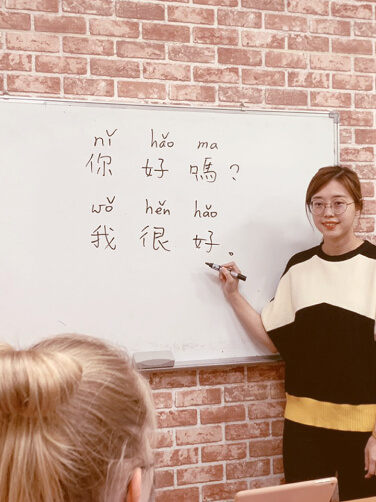 nǐ hǎo ma
你 好 嗎？
wǒ hěn hǎo
我 很 好。